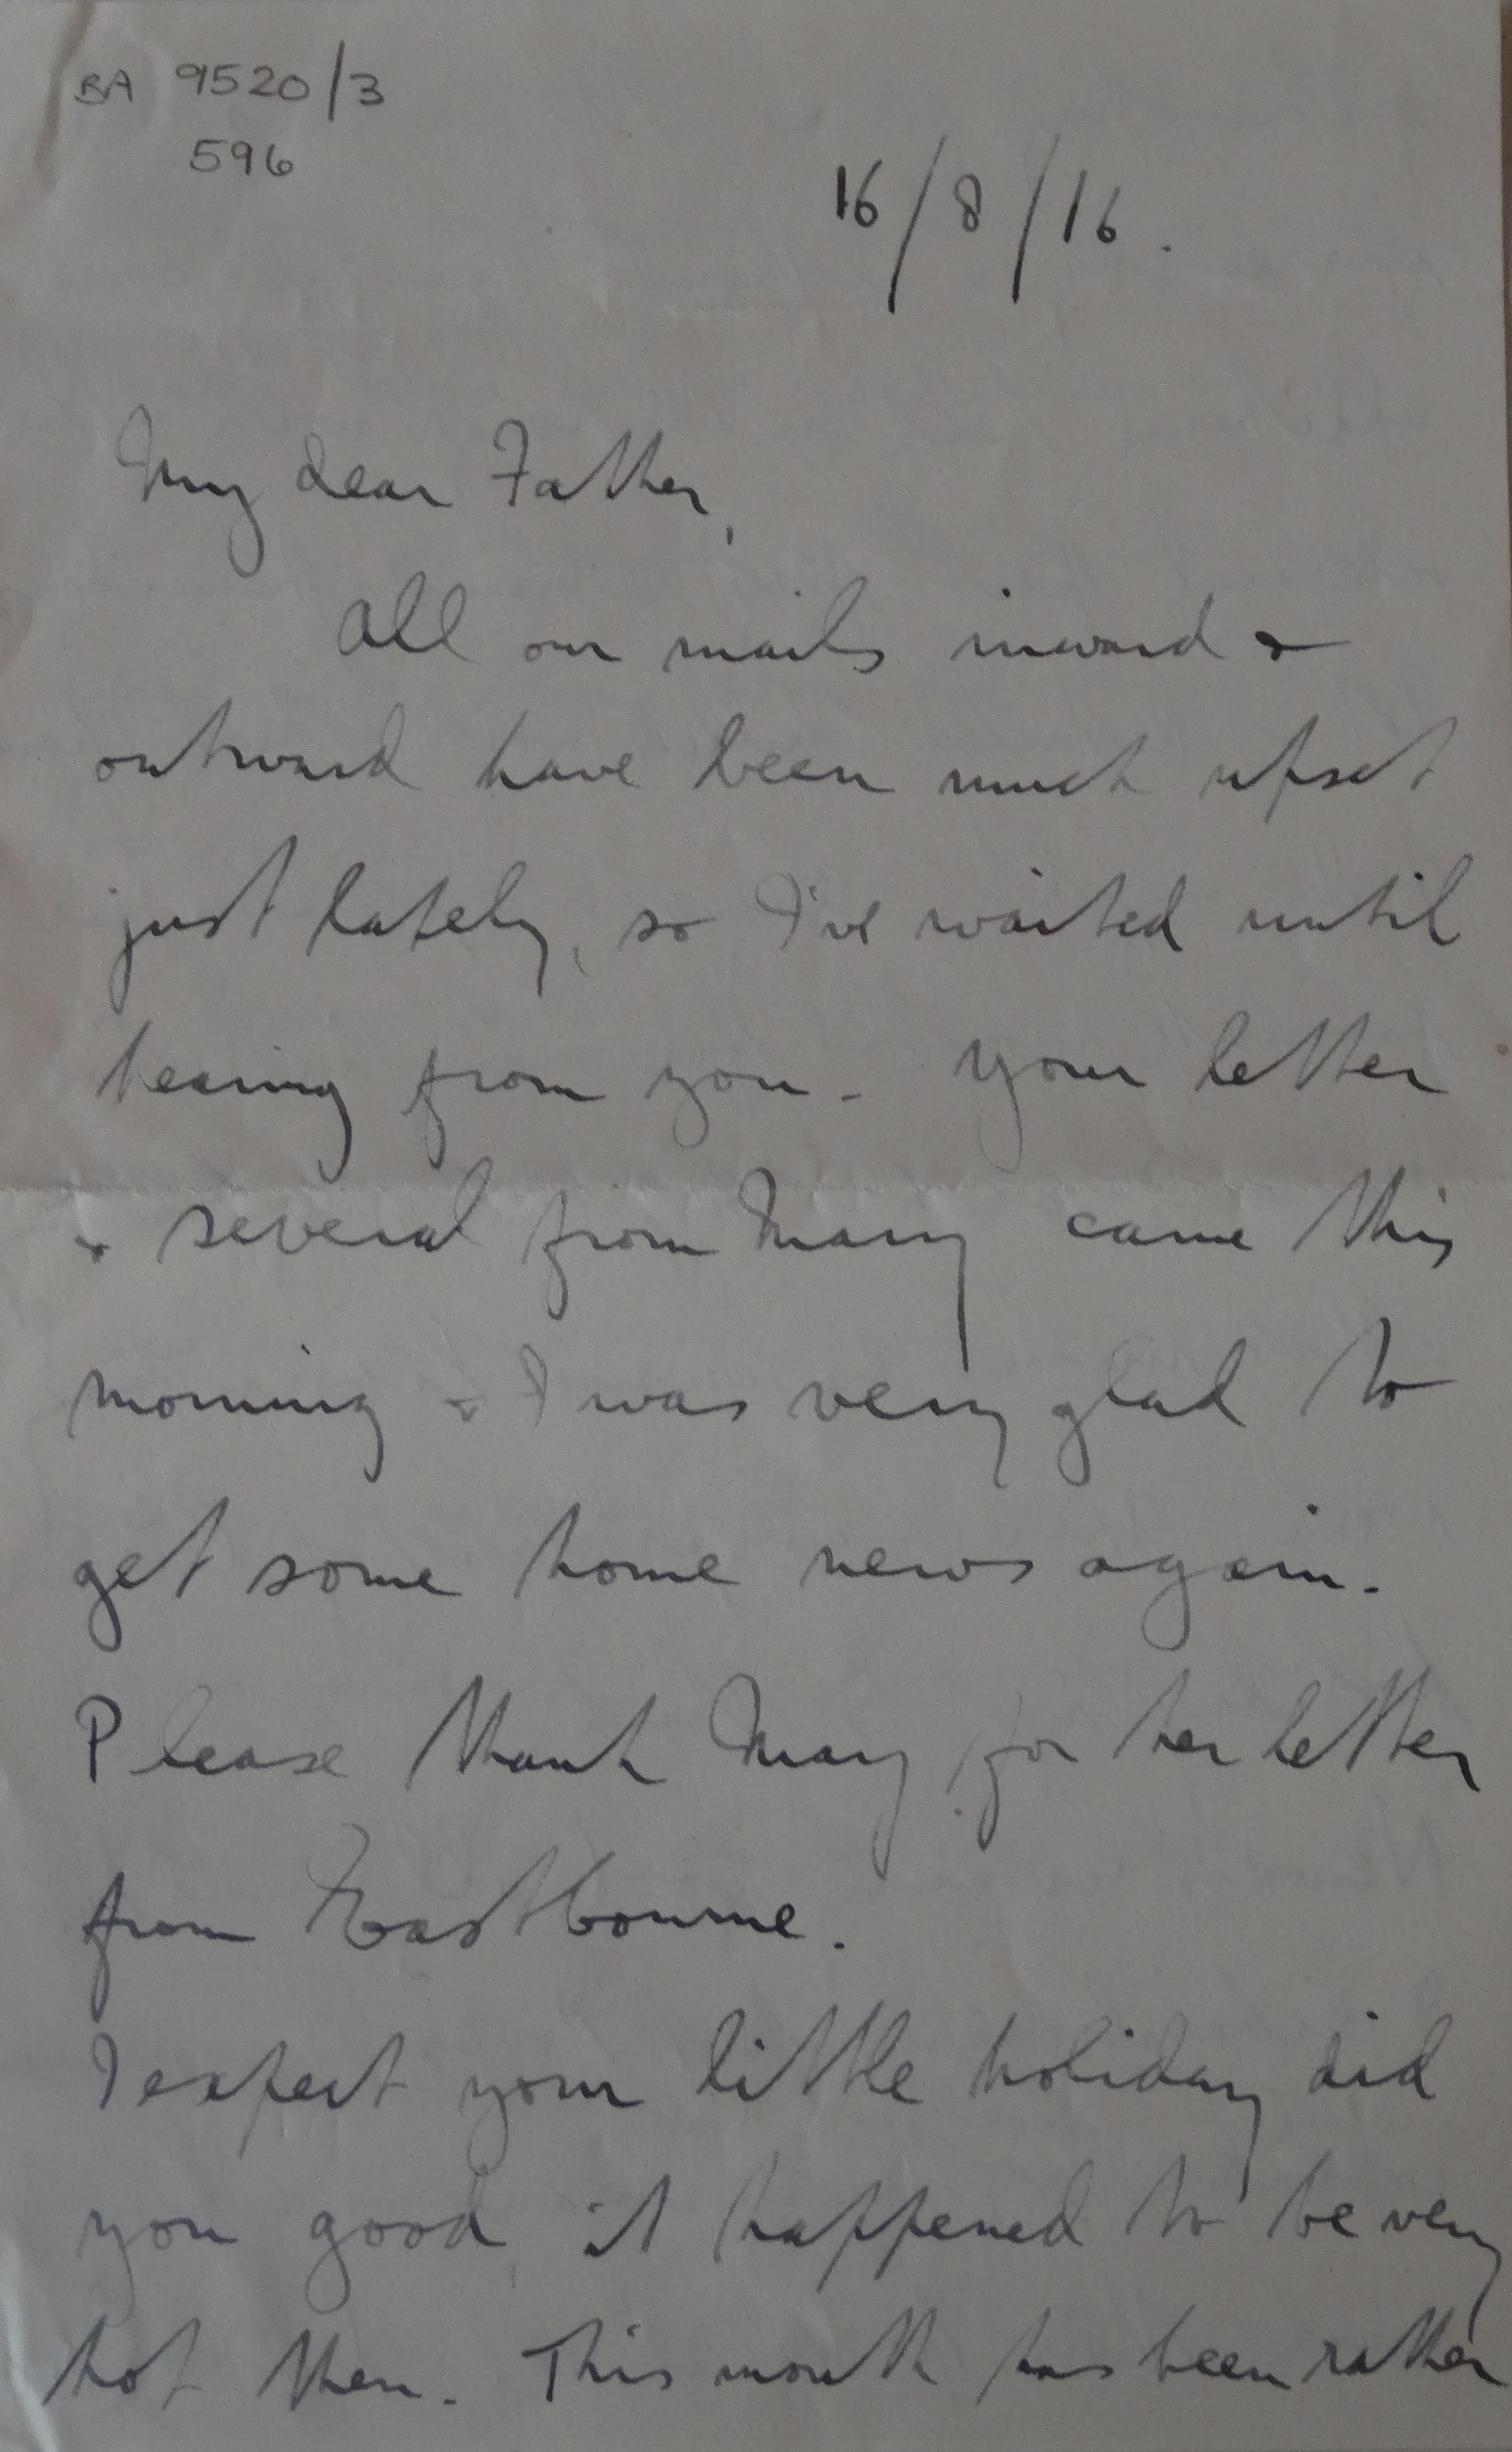 BA 9520/3
596
16/8/16.
My dear Father,
All our mails inward &
outward have been much upset
just lately, so I've waited until
hearing from you. Your letter
& several from Mary came this
morning & I was very glad to
get some home news again.
Please thank Mary for her letter
from Eastbourne.
I expect your little holiday did
you good, it happened to be very
hot then. This month has been rather